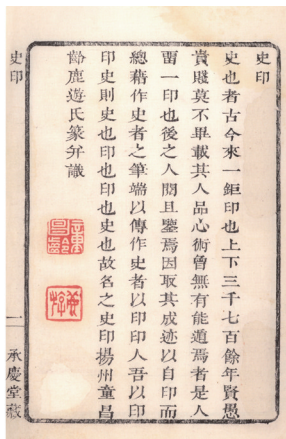 史印
史也者古今來一鉅印也上下三千七百餘年賢愚
貴賤莫不畢載其人品心術曾無有能遁焉者是人
畱一印也後之人閱且鑒焉因取其成迹以自印而
總藉作史者之筆端以傳作史者以印印人吾以印
印史則史也印也印也史也故名之史印揚州童昌
齡鹿遊氏篆弁識
童昌齡
史印
一
承慶堂藏